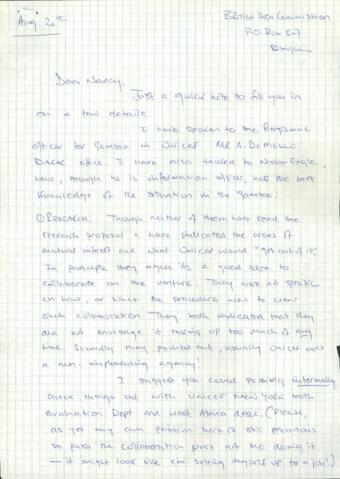 Aug 20th
British High Commission
P.O Box 507
Banjul
Dear Nancy,
Just a quick note to fill you in
on a few details
I have spoken to the Programme
officer for Gambia in Unicef MR A. DeMELLO
DAKAR office. I have also talked to
who, though he is information officer, has the best
knowledge of the situation in the Gambia.
① RESEARCH. Though neither of them have read the
research proposal I have indicated the areas of
mutual interest and what Unicef would "get out of it".
In principle they agree its a good idea to
collaborate on the venture. They were not specific
on how, or what the procedure was to clear
such collaboration. They both indicated that they
did not envisage it taking up too much of my
time. Secondly they pointed out, usually Unicef was
a non-implementing agency!
I suggest you could possibly informally
check things out with Unicef New York both
Evaluation Dept and West Africa desk. (Please,
as yet my own position here is still precarious
so push the collaboration part not me doing it
— it might look like I'm setting myself up for a job!)